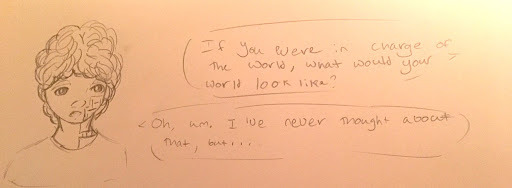 If you were in charge of
the world, what would your
world look like?
Oh, um. I've never thought about
that, but...